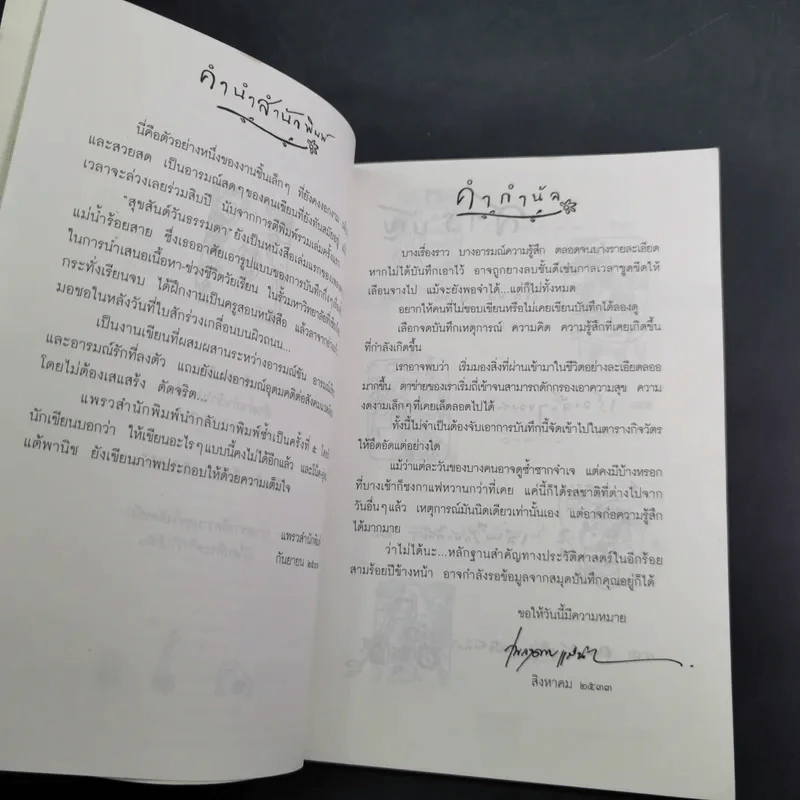 คำนำสำนักพิมพ์
นี่คือตัวอย่างหนึ่งของงานชิ้นเล็กๆ ที่ยังคงงอกงาม
และสวยสด เป็นอารมณ์สดๆของคนเขียนที่ยังทันสมัยอยู่
เวลาจะล่วงเลยร่วมสิบปี นับจากการตีพิมพ์รวมเล่มครั้งแรก
"สุขสันต์วันธรรมดา" ยังเป็นหนังสือเล่มแรกของ
แม่น้ำร้อยสาย ซึ่งเธออาศัยเอารูปแบบของการบันทึก
ในการนำเสนอเนื้อหา-ช่วงชีวิตวัยเรียน ในรั้วมหาวิทยาลัย
กระทั่งเรียนจบ ได้ฝึกงานเป็นครูสอนหนังสือ แล้วลาจาก
มอชอในหลังวันที่ใบสักร่วงเกลื่อนบนผิวถนน...
เป็นงานเขียนที่ผสมผสานระหว่างอารมณ์ขัน
และอารมณ์รักที่ลงตัว แถมยังแฝงอารมณ์อุดมคติต่อสังคม
โดยไม่ต้องเสแสร้ง ดัดจริต...
แพรวสำนักพิมพ์นำกลับมาพิมพ์ซ้ำเป็นครั้งที่ ๕
นักเขียนบอกว่า ให้เขียนอะไรๆแบบนี้คงไม่ได้อีกแล้ว
แต้พานิช ยังเขียนภาพประกอบให้ด้วยความเต็มใจ
แพรวสำนักพิมพ์
กันยายน
คำกำนัล
บางเรื่องราว บางอารมณ์ความรู้สึก ตลอดจนบางรายละเอียด
หากไม่ได้บันทึกเอาไว้ อาจถูกยางลบชั้นดีเช่นกาลเวลาขูดขีดให้
เลือนจางไป แม้จะยังพอจำได้...แต่ก็ไม่ทั้งหมด
อยากให้คนที่ไม่ชอบเขียนหรือไม่เคยเขียนบันทึกได้ลองดู
เลือกจดบันทึกเหตุการณ์ ความคิด ความรู้สึกที่เคยเกิดขึ้น
ที่กำลังเกิดขึ้น
เราอาจพบว่า เริ่มมองสิ่งที่ผ่านเข้ามาในชีวิตอย่างละเอียดลออ
มากขึ้น ตาข่ายของเราเริ่มถี่เข้าจนสามารถดักกรองเอาความสุข ความ
งดงามเล็กๆที่เคยเล็ดลอดไปได้
ทั้งนี้ไม่จำเป็นต้องจับเอาการบันทึกนี้จัดเข้าไปในตารางกิจวัตร
ให้อึดอัดแต่อย่างใด
แม้ว่าแต่ละวันของบางคนอาจดูซ้ำซากจำเจ แต่คงมีบ้างหรอก
ที่บางเช้าก็ชงกาแฟหวานกว่าที่เคย แค่นี้ก็ได้รสชาติที่ต่างไปจาก
วันอื่นๆแล้ว เหตุการณ์มันนิดเดียวเท่านั้นเอง แต่อาจก่อความรู้สึก
ได้มากมาย
ว่าไม่ได้นะ...หลักฐานสำคัญทางประวัติศาสตร์ในอีกร้อย
สามร้อยปีข้างหน้า อาจกำลังรอข้อมูลจากสมุดบันทึกคุณอยู่ก็ได้
ขอให้วันนี้มีความหมาย
สิงหาคม ๒๕๓๓